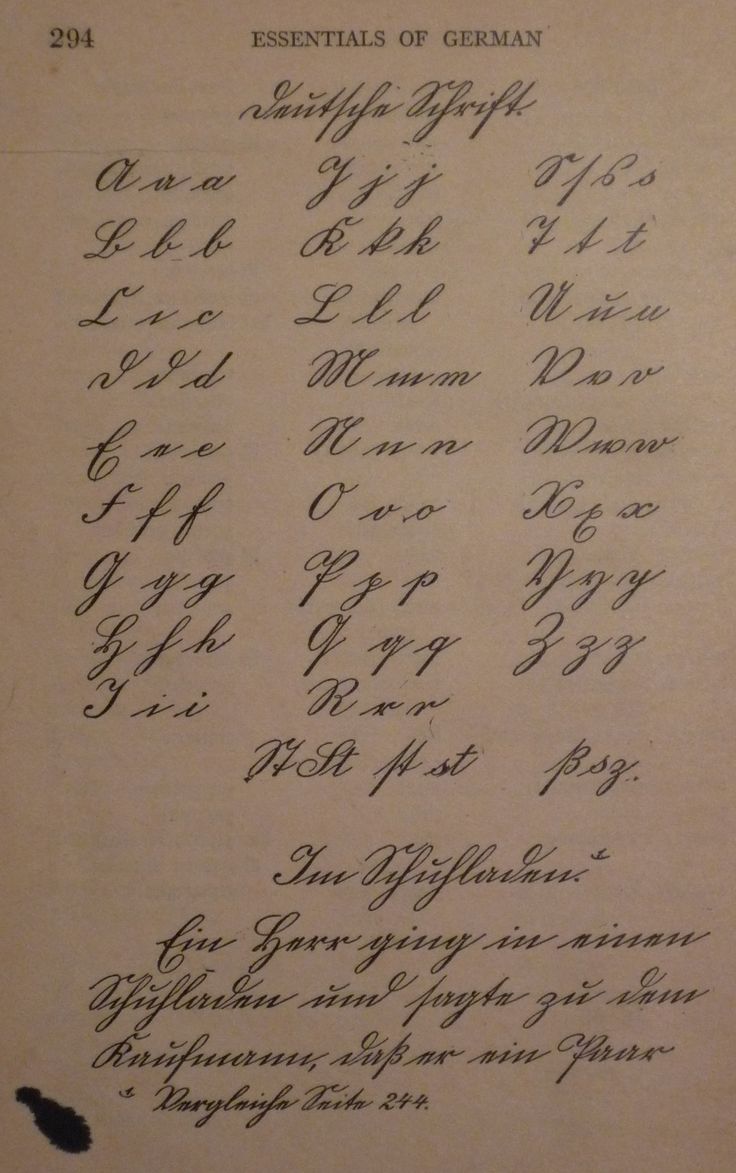 294 ESSENTIALS OF GERMAN
Deutsche Schrift.
A a a J j j S ſ s s
B b b K k k T t t
C c c L l l U u u
D d d M m m V v v
E e e N n n W w w
F f f O o o X x x
G g g P p p Y y y
H h h Q q q Z z z
I i i R r r
St St ſt st ß sz.
Im Schuhladen.*
Ein Herr ging in einen
Schuhladen und ſagte zu dem
Kaufmann, daß er ein Paar
* Vergleiche Seite 244.